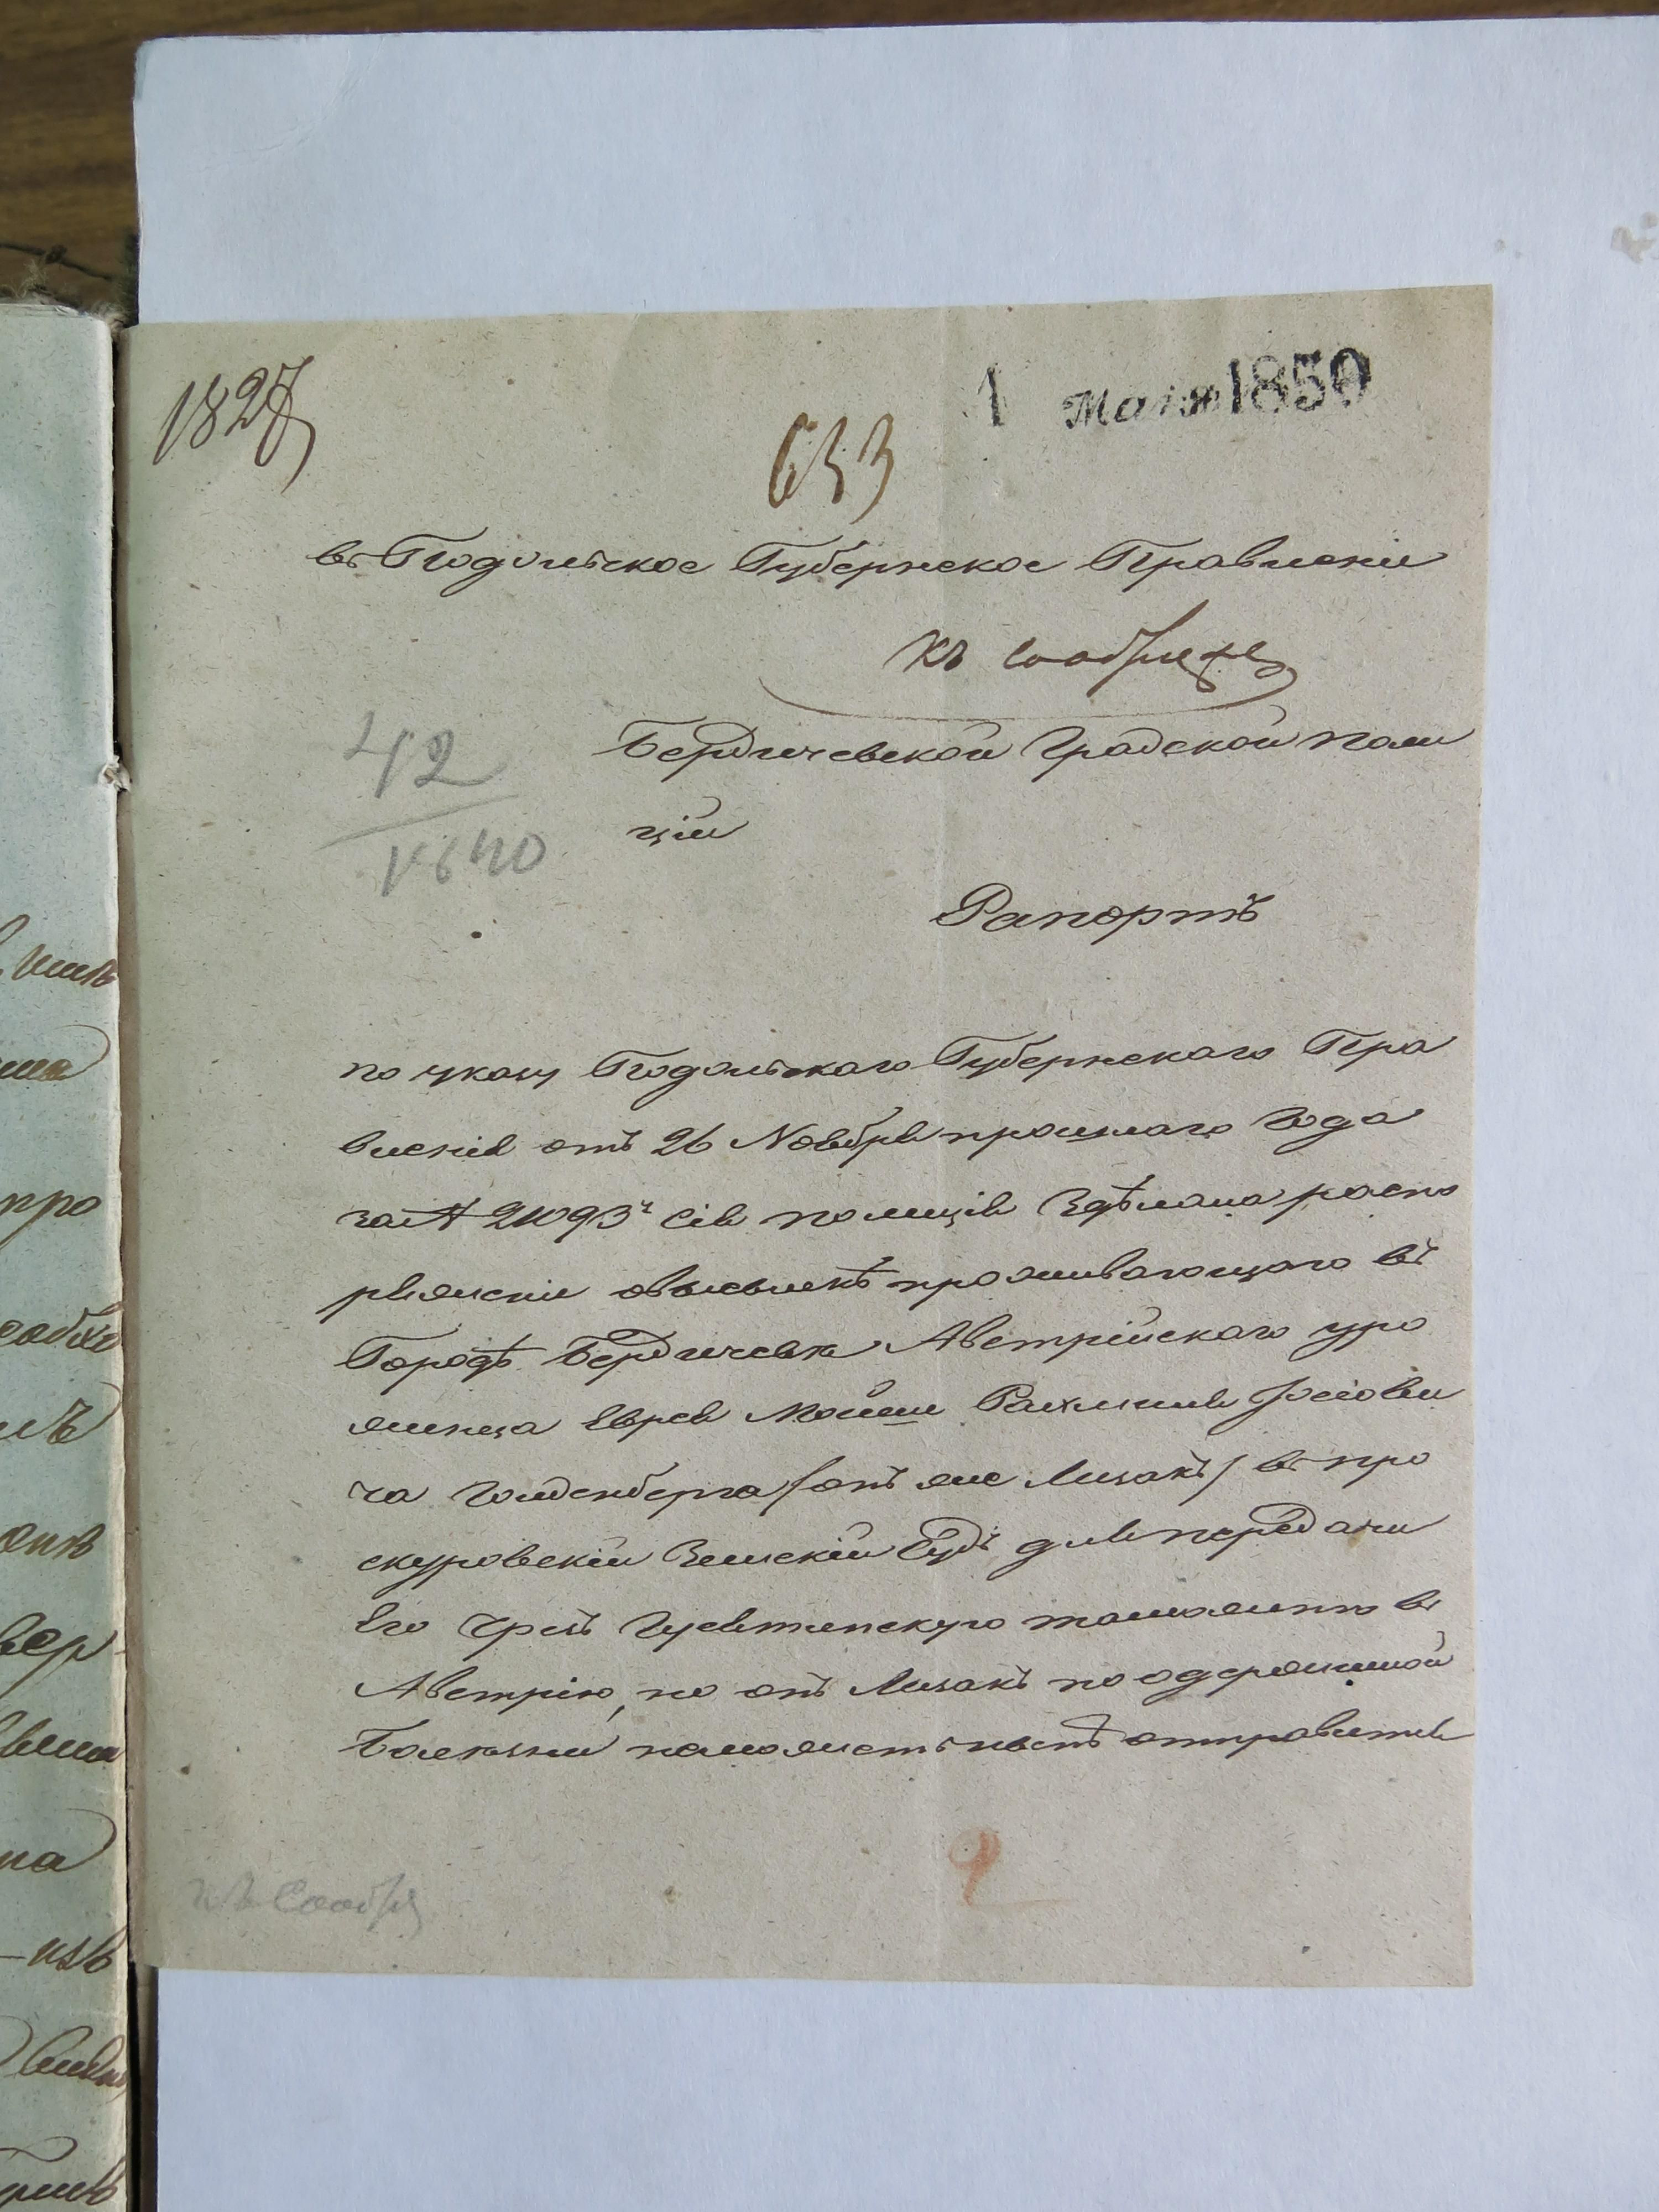 1827
1 Маія 1850
633
въ Подольское Губернское Правленіе
Къ сообра
42
1640
Бердичевской Градской поли
ціи
Рапортъ
по указу Подольскаго Губернскаго Пра
вленія отъ 26 Ноября прошлаго года
за № 21093 сія полиція здѣлала распо
ряженіе овысылкѣ проживающаго въ
Городѣ Бердичевѣ Австрійскаго уро
женца Еврея Мойши Рахмиля Іосіови
ча Голденберга /онъ же Лизакъ/ въ про
скуровскій Земскій Судъ для передачи
его чрезъ Гусятинскую таможню въ
Австрію, но онъ Лизакъ по одержимой
болезни неможетъ быть отправитъся
къ Сообр
9
шла
про
вер
на